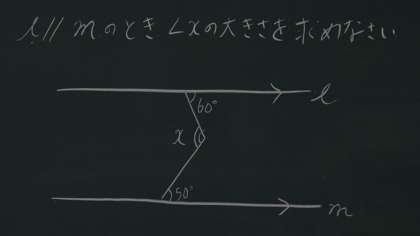 l // m のとき ∠xの大きさを求めなさい
60°
l
x
50°
m